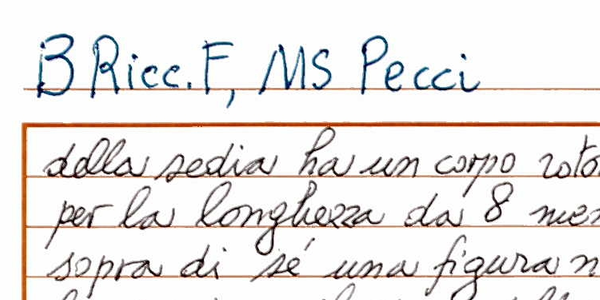 B Ricc. F, MS Pecci
della sedia ha un corpo
per la longhezza da 8
sopra di sé una figura